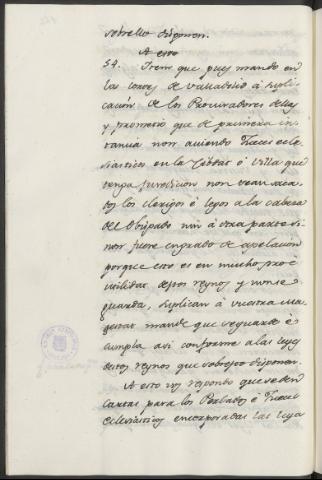 sobrello disponen.
A esto
54. Iten que pues mando en
las cortes de Valladolid á supli-
cación de los Procuradores dellas
y prometio que de primera ins-
tancia non auiendo Jueces ecle-
siasticos en la Cibdat ó Villa que
tenga jurediçion non sean saca-
dos los clerigos é legos á la cabeza
del obispado nin á otra parte si
non fuere en grado de apelacion
porque esto es en mucho pro é
utilidat destos reynos y non se
guarda, suplican á vuestra ma-
gestat mande que se guarde é
cumpla asi conforme a las leyes
destos reynos que sobresto disponen.
A esto vos respondo que se den
cartas para los Perlados é Jueces
eclesiasticos encorporadas las leyes